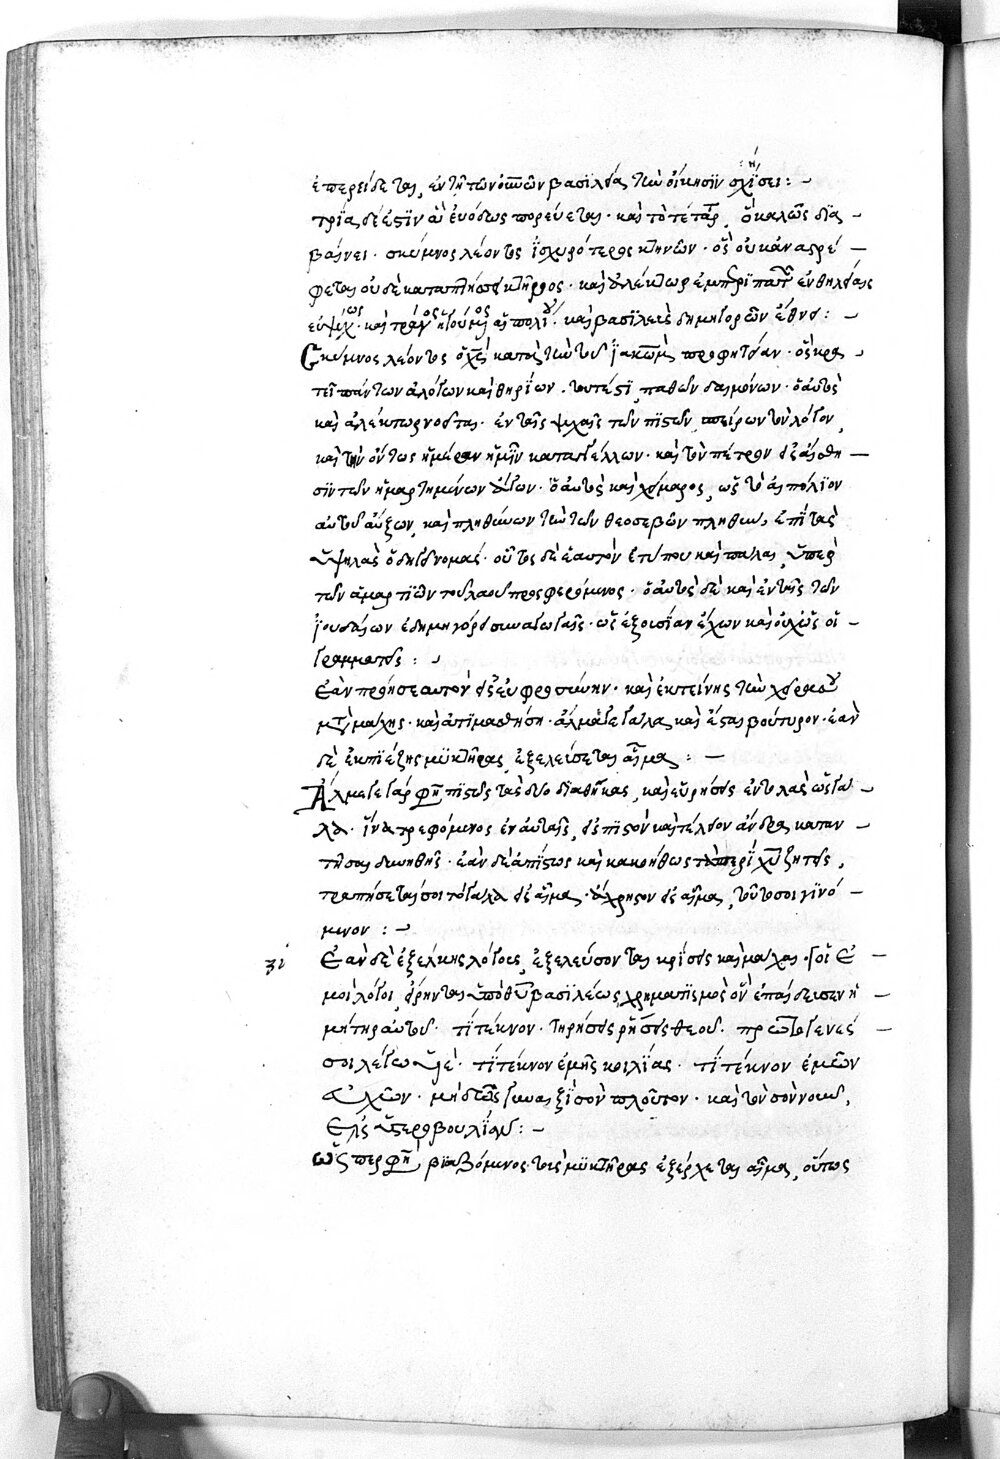 ἐπερείδεται, ἐν τῇ τῶν οὐνῶν βασιλεία τὴν οἴκησϊν σχήσει : ~
τρία δέ ἐστϊν ἃ εὐόδως πορεύεται · καὶ τὸ τέταρ, ὃ καλῶς δϊα –
βαίνει · σκύμνος λέοντος ἰσχυρότερος κτηνῶν · ὃς οὐκ ἀναστρέ –
φεται οὐδὲ καταπτήσσει κτῆνος · καὶ ἀλέκτωρ ἐμπεριπατῶν ἐν θηλείαις
εὐψύχως · καὶ τράγος ἡγούμενος αἰπολίου · καὶ βασϊλεὺς δημηγορῶν ἐν ἔθνει : ~
Σκύμνος λέοντος ὁ χς κατὰ τὴν τοῦ ἰακὼβ προφητείαν · ὃς κρα –
τεῖ πάντων ἀλόγων καὶ θηρίων · τουτέστι παθῶν δαιμόνων · ὁ αὐτὸς
καὶ ἀλέκτωρ νοεῖται · ἐν ταῖς ψυχαῖς τῶν πϊστῶν σπείρων τὸν λόγον,
καὶ τὴν ὄντως ἡμέραν ἡμῖν καταγγέλλων · καὶ τὸν πέτρον εἰς αἴσθη –
σϊν τῶν ἡμαρτημένων ἄγων · ὁ αὐτὸς καὶ χίμαρος, ὡς τὸ αἰπόλϊον
αὐτοῦ αὔξων, καὶ πληθύνων τὴν τῶν θεοσεβῶν πληθὺν, ἐπὶ τὰς
ὑψηλὰς ὁδηγεῖ νομάς · οὗτος δὲ ἑαυτὸν ἐτύπου καὶ πάλαι, ὑπὲρ
τῶν ἁμαρτϊῶν τοῦ λαοῦ προσφερόμενος · ὁ αὐτὸς δὲ καὶ ἐν ταῖς τῶν
ἰουδαίων ἐδημηγόρει συναγωγαῖς · ὡς ἐξουσίαν ἔχων καὶ οὐχ ὡς οἱ –
γραμματεῖς : ~
Ἐὰν πρόῃ σεαυτὸν εἰς εὐφροσύνην · καὶ ἐκτείνης τὴν χεῖρά σου
μετὰ μάχης · καὶ ἀτϊμασθήσῃ · ἄμελγε γάλα καὶ ἔσται βούτυρον · ἐὰν
δὲ ἐκπϊέζης μϋκτῆρας, ἐξελεύσεται αἷμα : –
Ἄμελγε γάρ φη πϊστὸς τὰς δύο διαθήκας, καὶ εὑρήσεις ἐντολὰς ὡς γά –
λα · ἵνα τρεφόμενος ἐν αὐταῖς, εἰς πϊστὸν καὶ τέλειον ἄνδρα καταν –
τῆσαι δυνηθῇς · ἐὰν δὲ ἀπίστως καὶ κακοήθως τὰ περὶ χυ ζητεῖς,
τραπήσεταί σοι τὸ γάλα εἰς αἷμα · ἄχρηστον εἰς αἷμα, τοῦτό σοι γϊνό –
μενον : ~
Ἐὰν δὲ ἐξέλκης λόγους, ἐξελεύσονται κρίσεις καὶ μάχαι · οἱ ἐ –
μοὶ λόγοι εἴρηνται ὑπὸ θυ βασϊλέως, χρηματϊσμὸς ὃν ἐπαίδευσεν ἡ –
μήτηρ αὐτοῦ · τί τέκνον · τηρήσεις ῥήσεις θεοῦ · πρωτογενές –
σοι λέγω υἱέ · τί τέκνον ἐμῆς κοιλίας · τί τέκνον ἐμῶν
εὐχῶν · μὴ δῷς γυναιξὶ σὸν πλοῦτον · καὶ τὸν σὸν νοῦν,
εἰς ὑστεροβουλΐαν : –
Ὥσπερ φη βϊαζόμενος τοὺς μϋκτῆρας ἐξέρχεται αἷμα, οὕτως